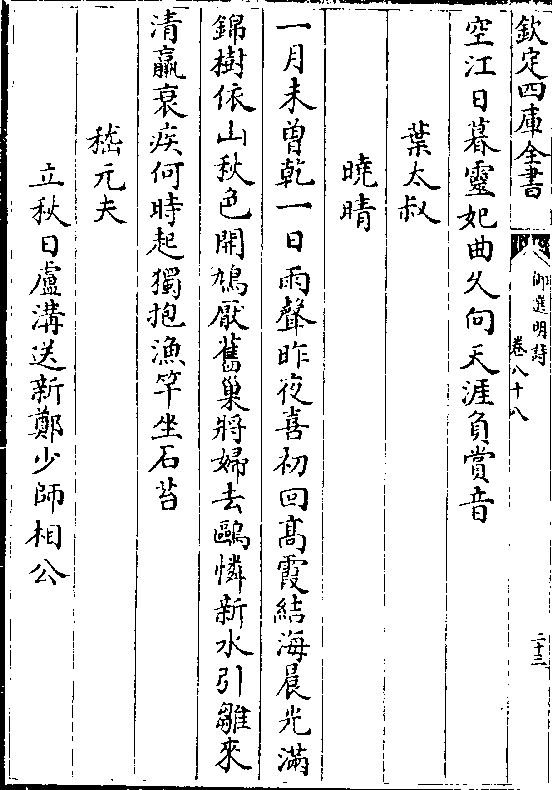 欽定四庫全書
御選明詩
卷八十八
二十三
空江日暮靈妃曲久向天涯負賞音
葉太叔
曉晴
一月未曾乾一日雨聲昨夜喜初回髙霞結海晨光滿
錦樹依山秋色開鳩厭舊巢將婦去鷗憐新水引雛來
清羸衰疾何時起獨抱漁竿坐石苔
嵇元夫
立秋日盧溝送新鄭少師相公